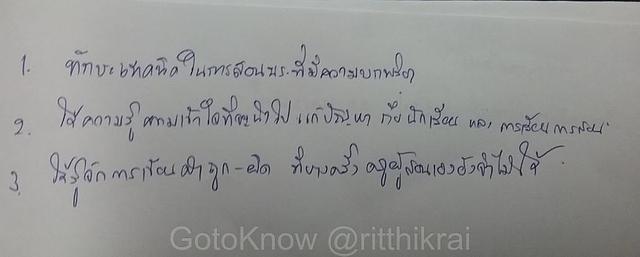 1. ทักษะเทคนิคในการสอนนร.ที่มีความบกพร่อง
2. ให้ความรู้ ความเข้าใจที่จะนำไป แก้ปัญหา กับนักเรียน และ การเรียนการสอน
3. ให้รู้จักการเขียนคำถูก-ผิด ที่บางครั้งครูผู้สอนเองยังจำไม่ได้
GotoKnow @ritthikrai